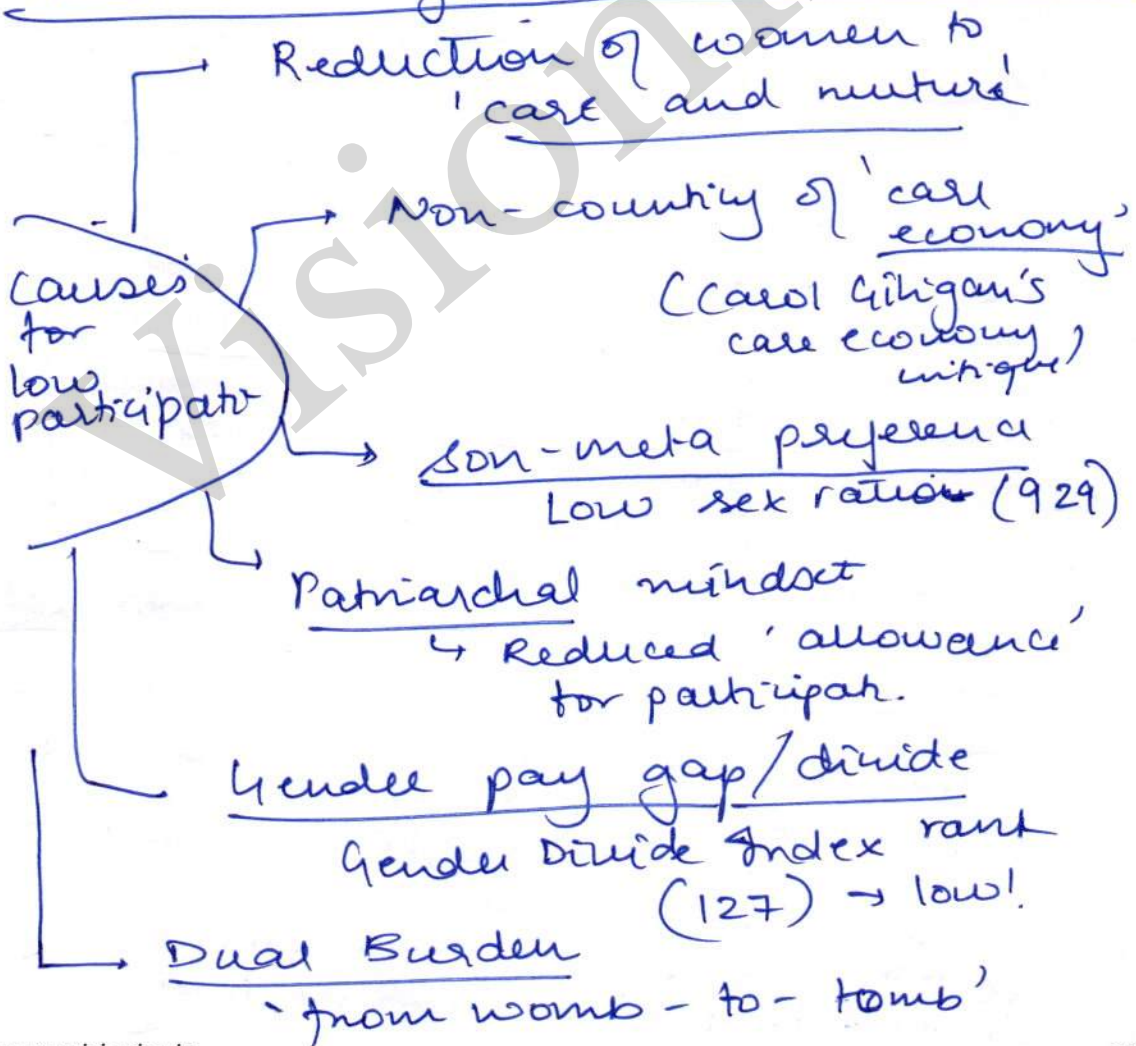 Reduction of women to
'care and nuture'
Non-counting of 'care
economy'
(Carol Giligan's
care economy
critique)
Causes
for
low
participatn
Son-meta preference
Low sex ratio (929)
Patriarchal mindset
↳ Reduced 'allowance'
for participatn.
Gender pay gap/divide
Gender Divide Index rank
(127) → low!
Dual Burden
'from womb-to-tomb'
Vision